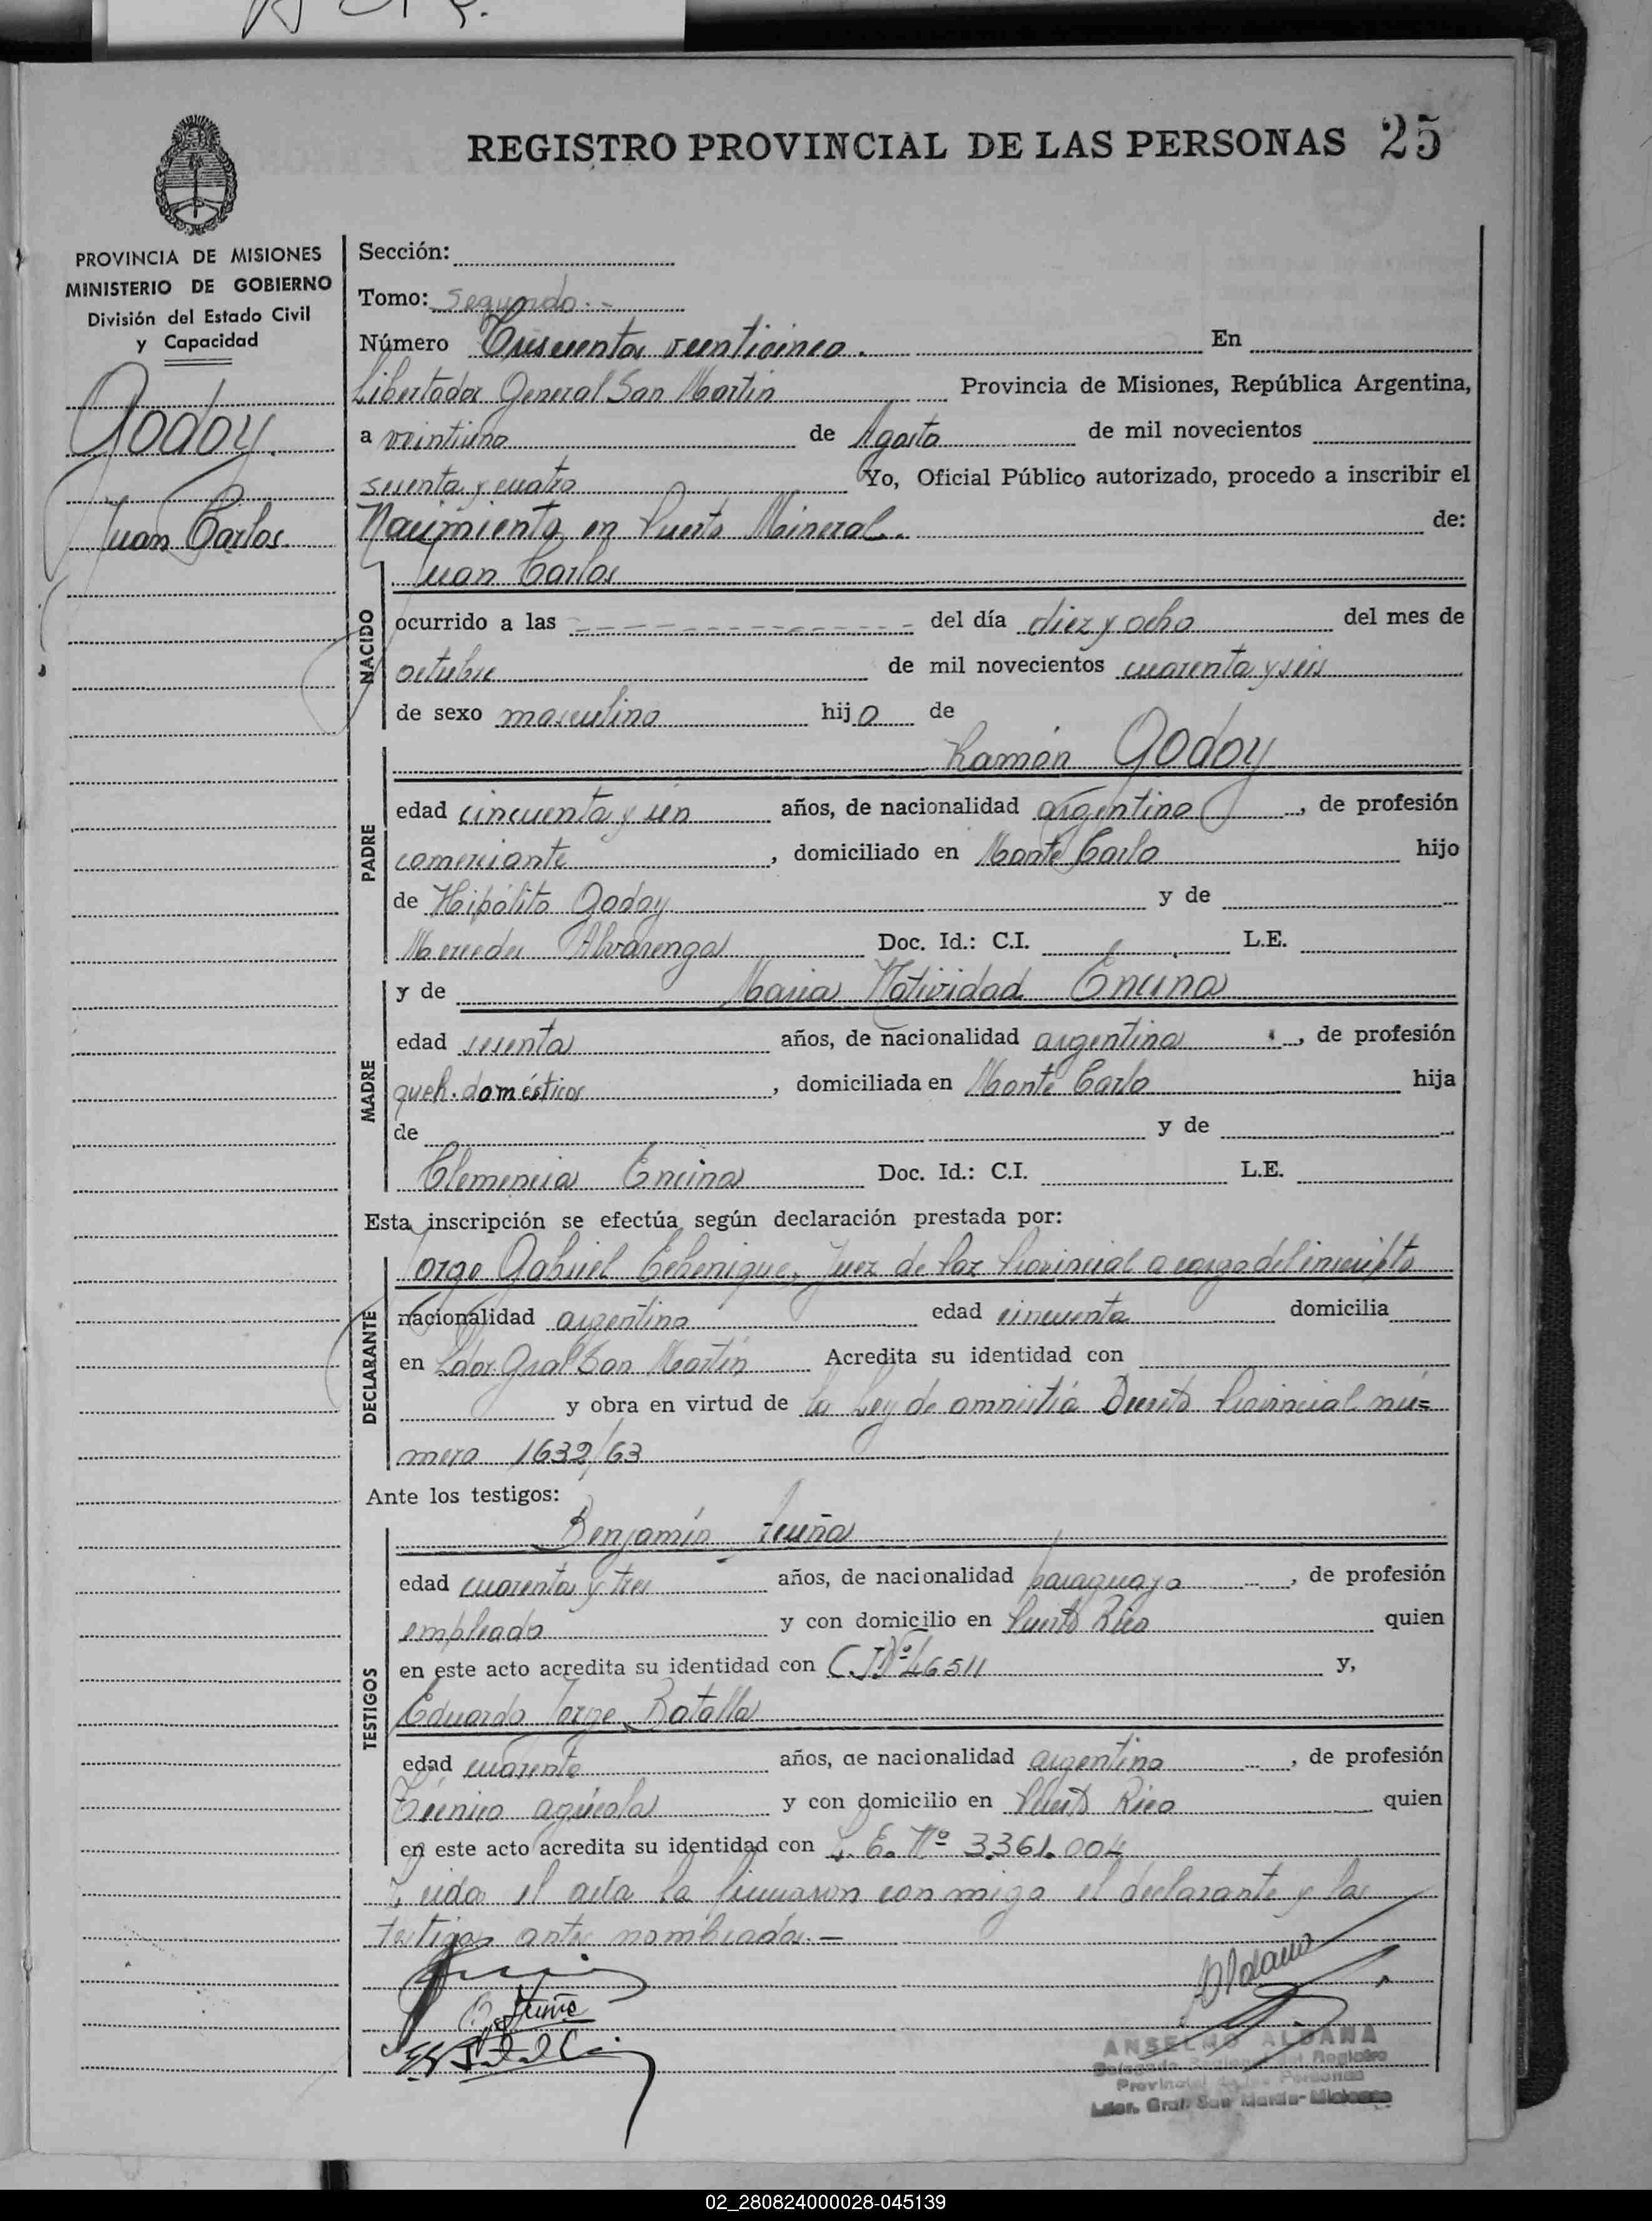 REGISTRO PROVINCIAL DE LAS PERSONAS 25
PROVINCIA DE MISIONES
MINISTERIO DE GOBIERNO
División del Estado Civil
y Capacidad
Godoy.
Juan Carlos.
Sección:
Tomo: Segundo.-
Número Trescientos veinticinco. En
Libertador General San Martin Provincia de Misiones, República Argentina,
a veintiuno de Agosto de mil novecientos
sesenta y cuatro Yo, Oficial Público autorizado, procedo a inscribir el
Nacimiento en Puerto Mineral.. de:
Juan Carlos
NACIDO
ocurrido a las del día diez y ocho del mes de
octubre de mil novecientos cuarenta y seis
de sexo masculino hijo de
PADRE
Ramón Godoy
edad cincuenta y años, de nacionalidad argentino, de profesión
comerciante, domiciliado en Monte Carlo hijo
de Hipólito Godoy y de
Mercedes Alvarenga Doc. Id.: C.I. L.E.
MADRE
y de Maria Natividad Encina
edad años, de nacionalidad argentina, de profesión
queh. domésticos, domiciliada en Monte Carlo hija
de y de
Clemencia Encina Doc. Id.: C.I. L.E.
Esta inscripción se efectúa según declaración prestada por:
DECLARANTE
Jorge Gabriel Echenique, Juez de Paz Provincial a cargo del inscripto
nacionalidad argentino edad cincuenta domicilia
en Ldor. Gral San Martin Acredita su identidad con
y obra en virtud de la Ley de amnistía Decreto Provincial nú=
mero 1632/63
Ante los testigos:
TESTIGOS
Benjamín
edad cuarenta y tres años, de nacionalidad paraguaya, de profesión
empleado y con domicilio en Puerto Rico quien
en este acto acredita su identidad con C.I. Nº 46511 y,
Eduardo Jorge Batalla
edad cuarenta años, de nacionalidad argentino, de profesión
Técnico agrícola y con domicilio en Puerto Rico quien
en este acto acredita su identidad con L.E. Nº 3.361.004
Leida el acta la firmaron conmigo el declarante y los
testigos antes nombrados.-
ANSELMO ALDANA
Delegado Regional del Registro
Provincial de las Personas
Ldor. Gral. San Martin-Misiones
02_280824000028-045139